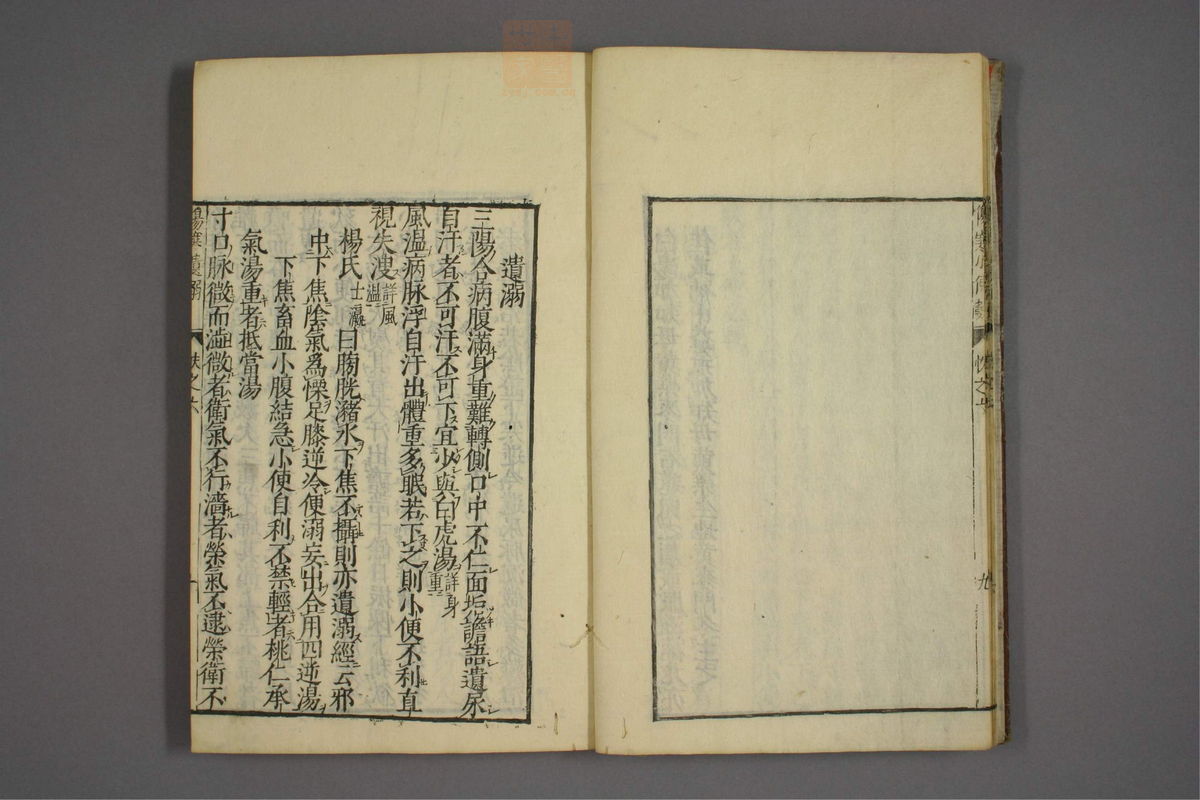 遺溺
三陽合病腹滿身重難轉側口中不仁面垢譫語遺尿
自汗者不可汗不可下宜少與白虎湯詳身重
風溫病脉浮自汗出體重多眠若下之則小便不利直
視失溲詳風溫
楊氏士瀛曰膀胱瀦水下焦不攝則亦遺溺經云邪
中下焦陰氣爲慄足膝逆冷便溺妄出合用四逆湯
下焦畜血小腹結急小便自利不禁輕者桃仁承
氣湯重者抵當湯
寸口脉微而澁微者衛氣不行澁者榮氣不逮榮衛不
遺溺
帙之六
九